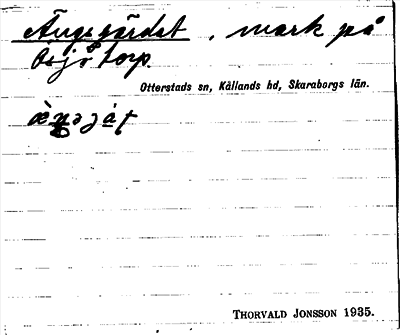 Ängsgärdet, mark på
Osjötorp
Otterstads sn, Kållands hd, Skaraborgs län.
THORVALD JONSSON 1935.